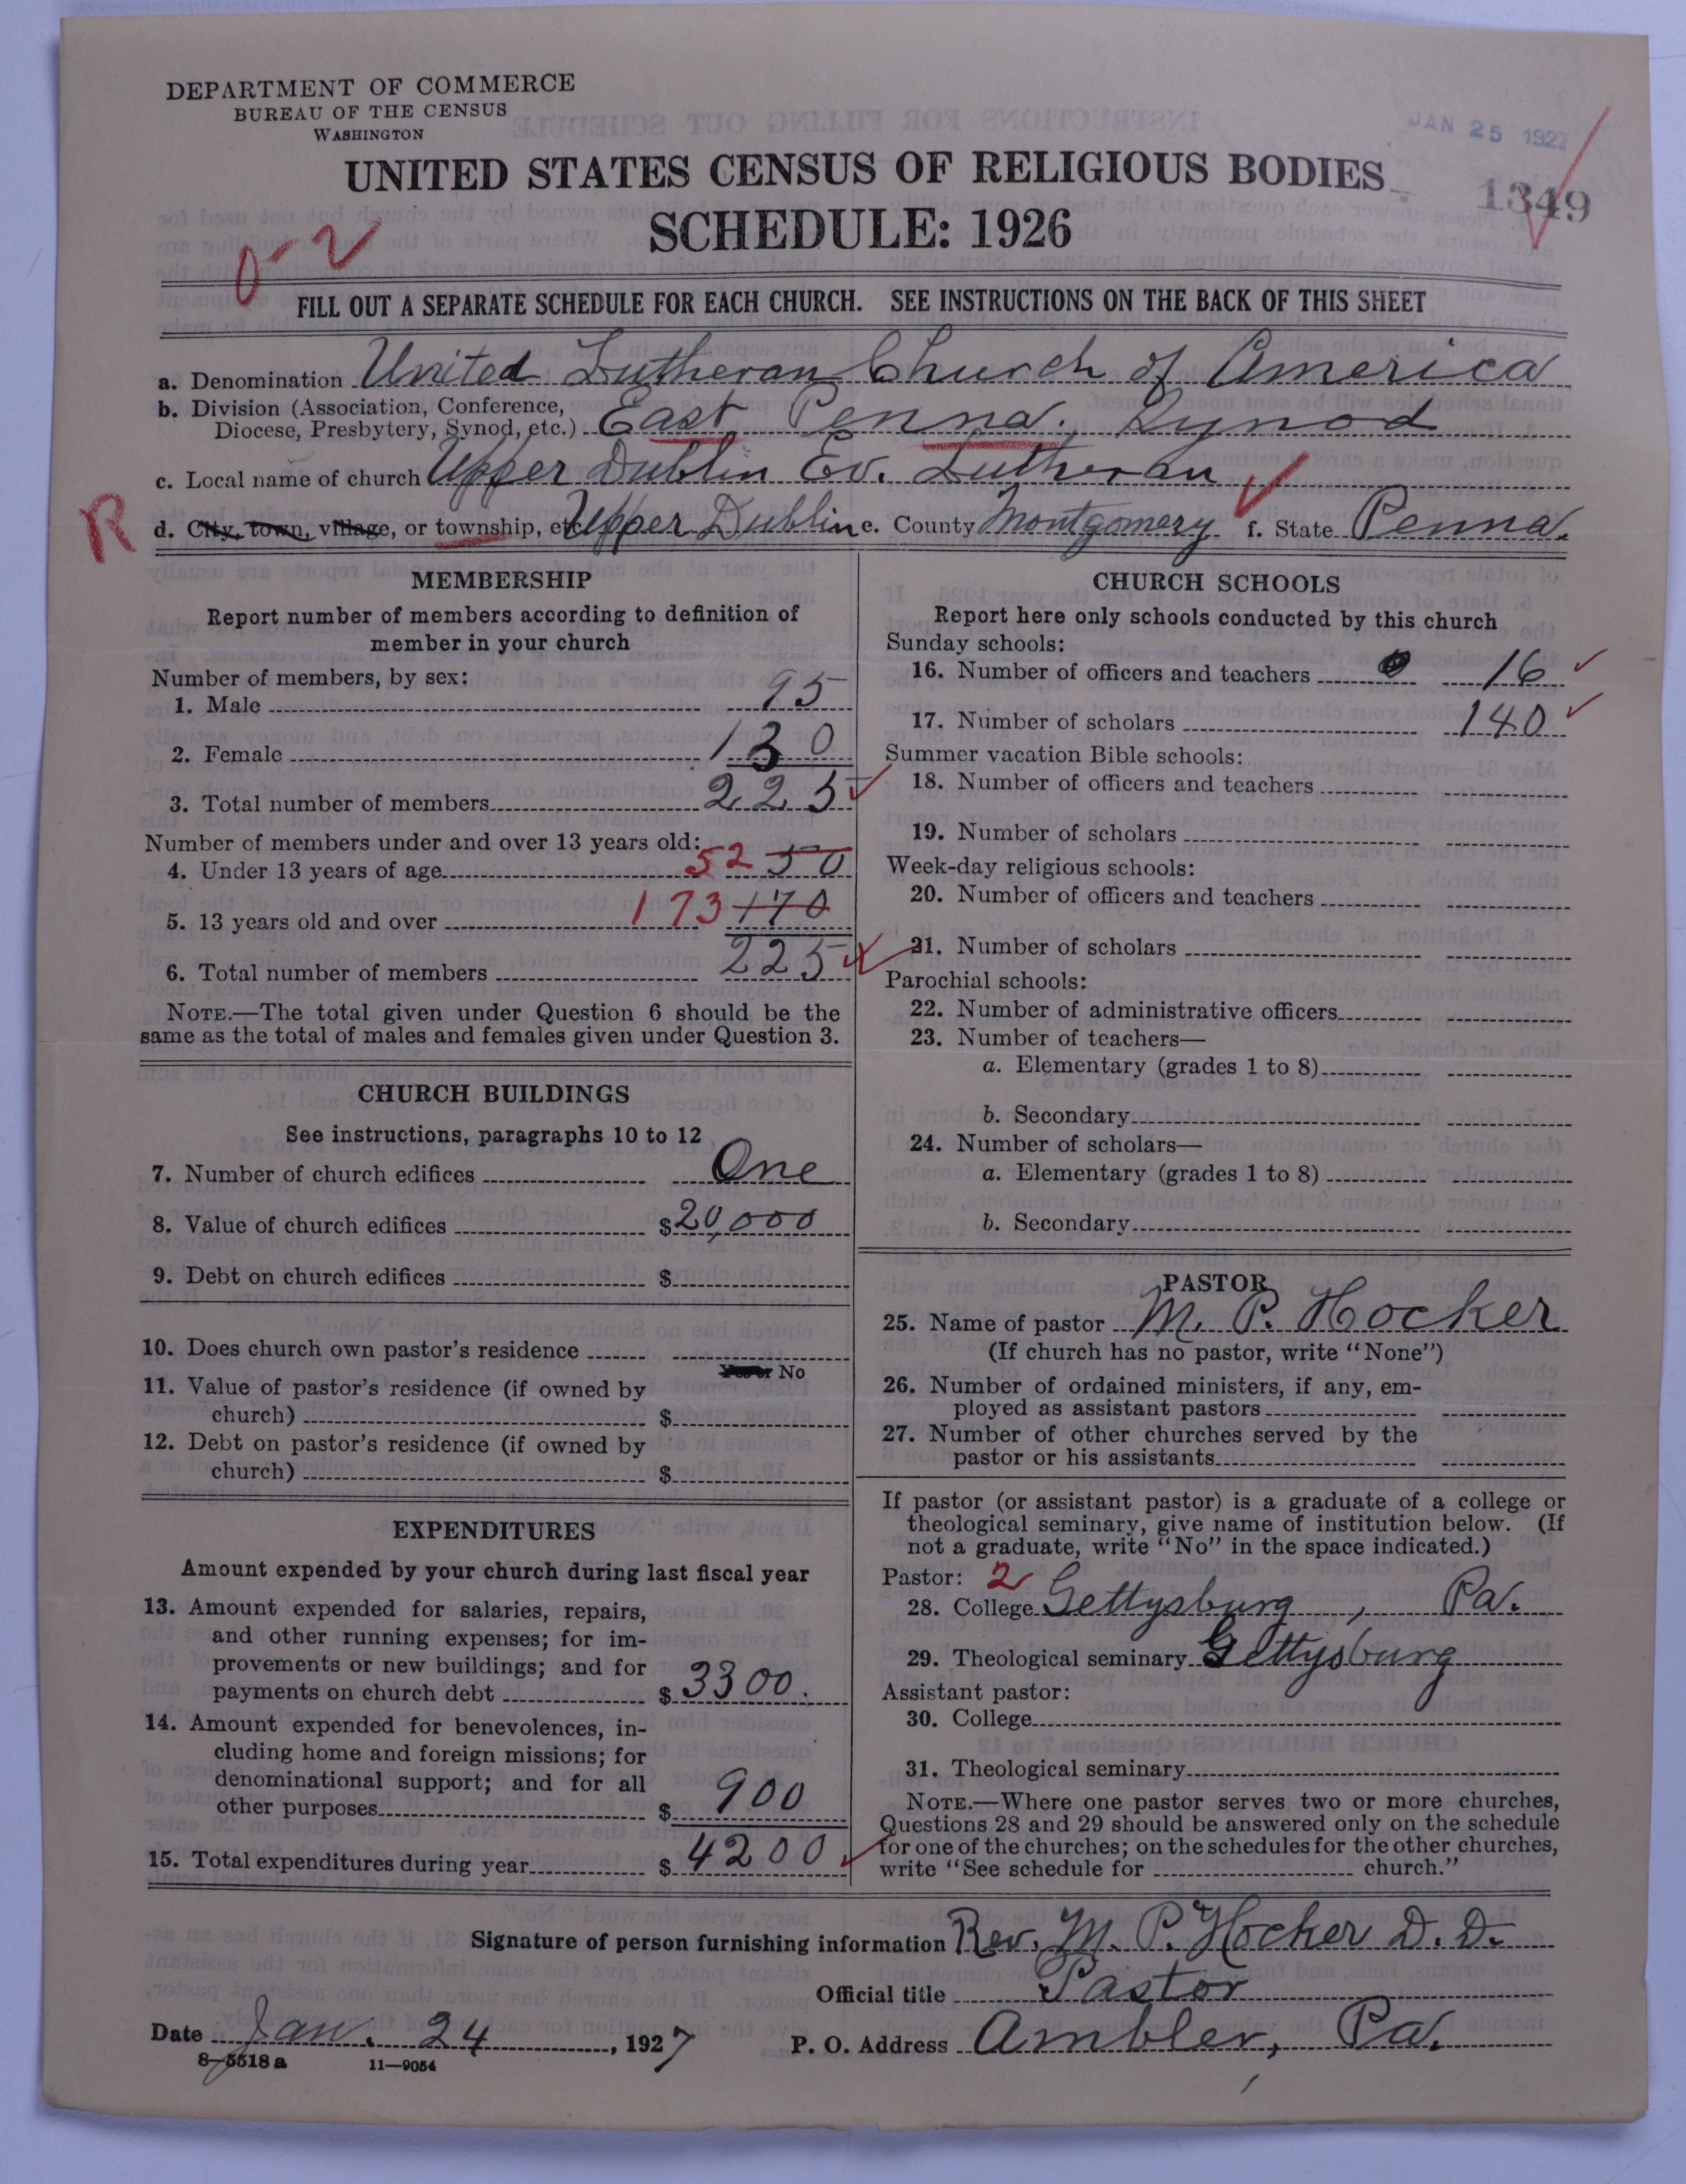 DEPARTMENT OF COMMERCE
BUREAU OF THE CENSUS
WASHINGTON
JAN 25 1927
UNITED STATES CENSUS OF RELIGIOUS BODIES
1349
SCHEDULE: 1926
0-2
FILL OUT A SEPARATE SCHEDULE FOR EACH CHURCH. SEE INSTRUCTIONS ON THE BACK OF THIS SHEET
a. Denomination United Lutheran Church of America
b. Division (Association, Conference,
Diocese, Presbytery, Synod, etc.) East Penna. Synod
c. Local name of church Upper Dublin Ev. Lutheran
R d. City, town, village, or township, etc. Upper Dublin e. County Montgomery f. State Penna.
MEMBERSHIP
Report number of members according to definition of
member in your church
Number of members, by sex:
1. Male 95
2. Female 130
3. Total number of members 225
Number of members under and over 13 years old:
4. Under 13 years of age 52 50
5. 13 years old and over 173 170
6. Total number of members 225
NOTE.—The total given under Question 6 should be the
same as the total of males and females given under Question 3.
CHURCH BUILDINGS
See instructions, paragraphs 10 to 12
7. Number of church edifices One
8. Value of church edifices $20,000
9. Debt on church edifices $
10. Does church own pastor's residence
Yes or No
11. Value of pastor's residence (if owned by
church) $
12. Debt on pastor's residence (if owned by
church) $
EXPENDITURES
Amount expended by your church during last fiscal year
13. Amount expended for salaries, repairs,
and other running expenses; for im-
provements or new buildings; and for
payments on church debt $3300.
14. Amount expended for benevolences, in-
cluding home and foreign missions; for
denominational support; and for all
other purposes $900
15. Total expenditures during year $4200
CHURCH SCHOOLS
Report here only schools conducted by this church
Sunday schools:
16. Number of officers and teachers 16
17. Number of scholars 140
Summer vacation Bible schools:
18. Number of officers and teachers
19. Number of scholars
Week-day religious schools:
20. Number of officers and teachers
21. Number of scholars
Parochial schools:
22. Number of administrative officers
23. Number of teachers—
a. Elementary (grades 1 to 8)
b. Secondary
24. Number of scholars—
a. Elementary (grades 1 to 8)
b. Secondary
PASTOR
25. Name of pastor M. P. Hocker
(If church has no pastor, write "None")
26. Number of ordained ministers, if any, em-
ployed as assistant pastors
27. Number of other churches served by the
pastor or his assistants
If pastor (or assistant pastor) is a graduate of a college or
theological seminary, give name of institution below. (If
not a graduate, write "No" in the space indicated.)
Pastor: 2
28. College Gettysburg, Pa.
29. Theological seminary Gettysburg
Assistant pastor:
30. College
31. Theological seminary
NOTE.—Where one pastor serves two or more churches,
Questions 28 and 29 should be answered only on the schedule
for one of the churches; on the schedules for the other churches,
write "See schedule for church."
Signature of person furnishing information Rev. M. P. Hocker D. D.
Official title Pastor
Date Jan. 24, 1927 P. O. Address Ambler, Pa.
8-5518 a 11-9054